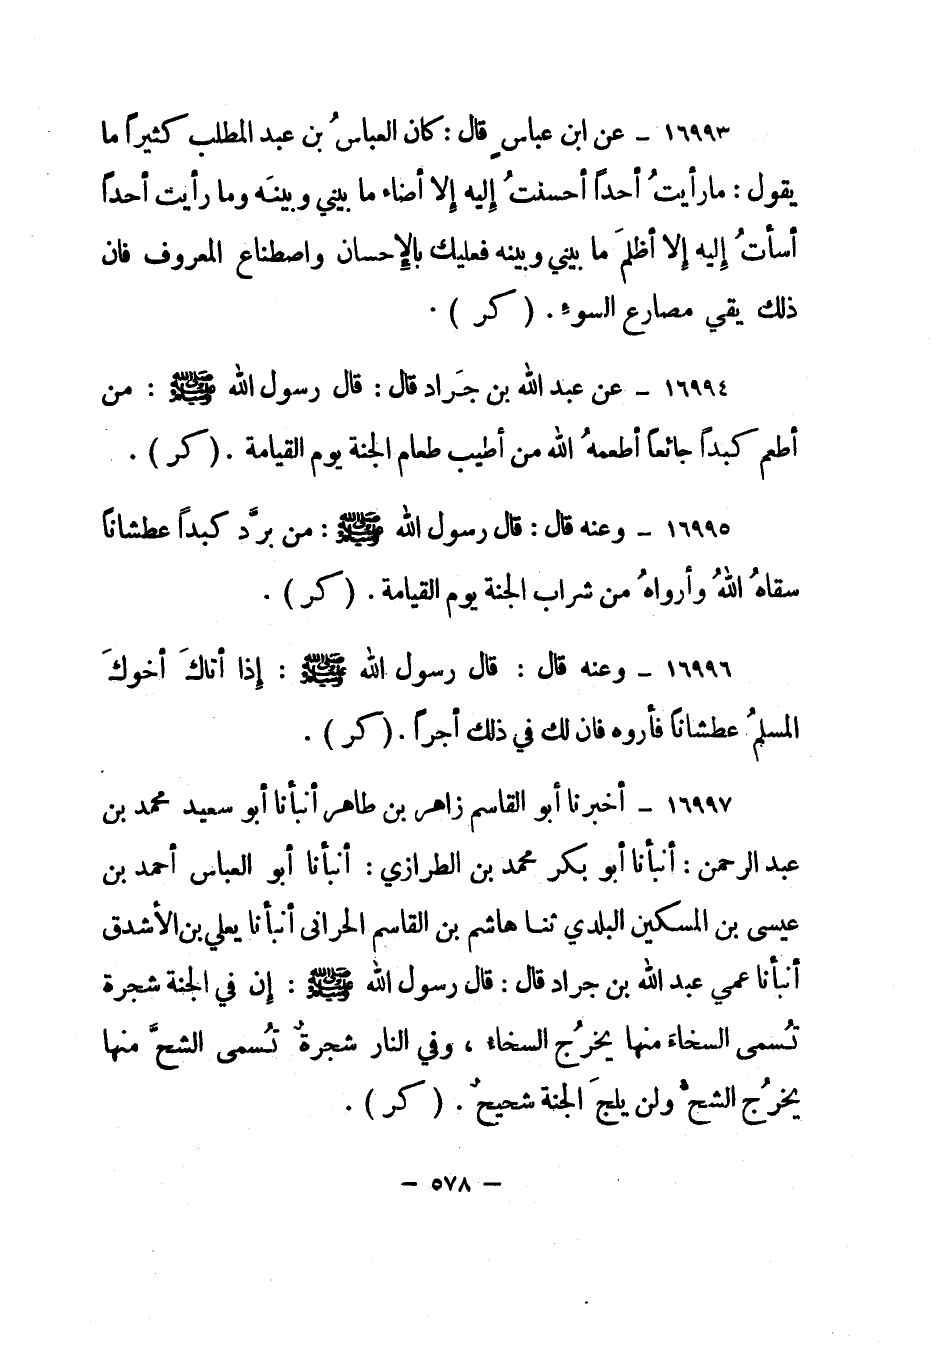 ١٦٩٩٣ ـ عن ابن عباسٍ قال : كان العباسُ بن عبد المطلب كثيراً ما
يقول : مارأيتُ أحداً أحسنتُ إليه إلا أضاء ما بيني وبينَه وما رأيت أحداً
أسأتُ إليه إلا أظلمَ ما بيني وبينه فعليك بالإحسان واصطناع المعروف فان
ذلك يقي مصارع السوء . ( كر ) .
١٦٩٩٤ ـ عن عبد الله بن جَراد قال : قال رسول الله ﷺ : من
أطعم كبداً جائعاً أطعمهُ الله من أطيب طعام الجنة يوم القيامة . ( كر ) .
١٦٩٩٥ ـ وعنه قال : قال رسول الله ﷺ : من برَّد كبداً عطشاناً
سقاهُ اللهُ وأرواهُ من شراب الجنة يوم القيامة . ( كر ) .
١٦٩٩٦ ـ وعنه قال : قال رسول الله ﷺ : إذا أتاكَ أخوكَ
المسلمُ عطشاناً فأروه فان لك في ذلك أجراً . ( كر ) .
١٦٩٩٧ ـ أخبرنا أبو القاسم زاهر بن طاهر أنبأنا أبو سعيد محمد بن
عبد الرحمن : أنبأنا أبو بكر محمد بن الطرازي : أنبأنا أبو العباس أحمد بن
عيسى بن المسكين البلدي ثنا هاشم بن القاسم الحرانى أنبأنا يعلي بن الأشدق
أنبأنا عمي عبد الله بن جراد قال : قال رسول الله ﷺ : إن في الجنة شجرة
تُسمى السخاءَ منها يخرُج السخاء ، وفي النار شجرةٌ تُسمى الشحَّ منها
يخرُج الشحُّ ولن يلجَ الجنة شحيحٌ . ( كر ) .
— ٥٧٨ —